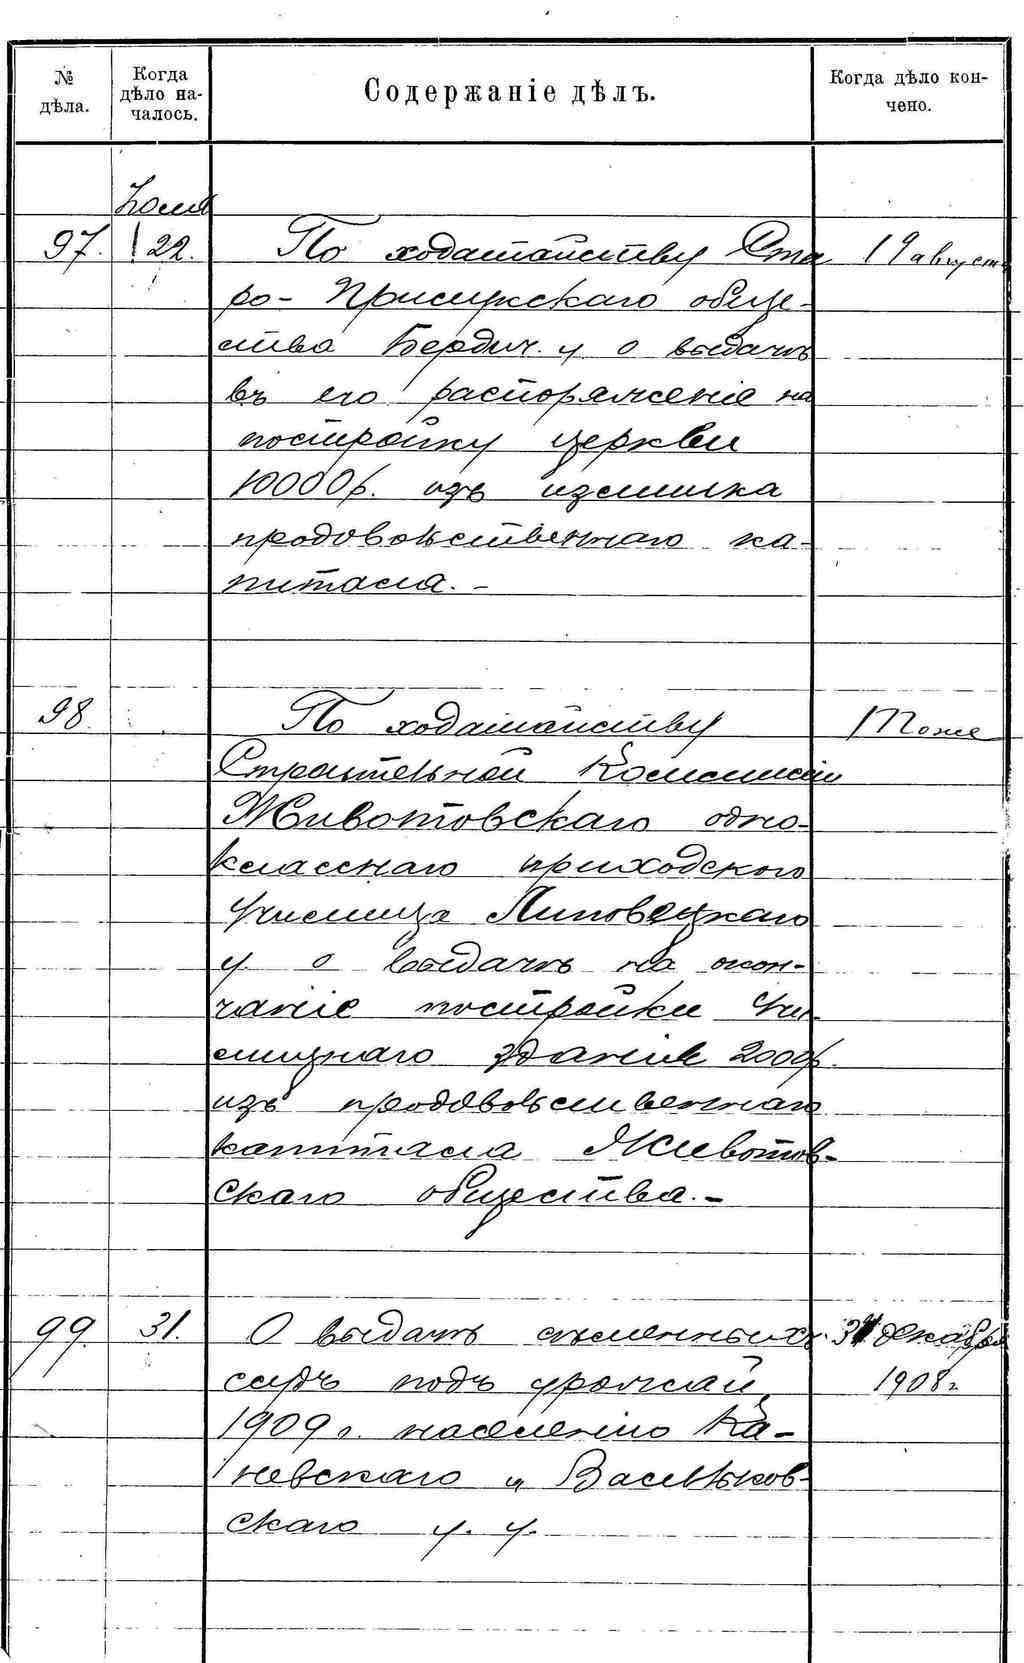 № дѣла. Когда дѣло на- чалось. Содержаніе дѣлъ. Когда дѣло кон- чено.
Іюля
97. 22. По ходатайству Ста 19 август
ро-Присужскаго обще-
ства Бердич. у о выдачѣ
въ его распоряженіе на
постройку церкви
10000р. изъ излишка
продовольственнаго ка-
питала. -
98. По ходатайству Тоже
Строительной Коммиссіи
Животовскаго одно-
класснаго приходского
Училища Липовецкаго
у. о выдачѣ на окон-
чаніе постройки Учи
лищнаго зданія 2000р.
изъ продовольственнаго
капитала Животов-
скаго общества. -
99. 31. О выдачѣ сѣменныхъ 31 декабря
ссудъ подъ урожай 1908 г
1909 г. населенію Ка-
невскаго и Васильков-
скаго у. у.